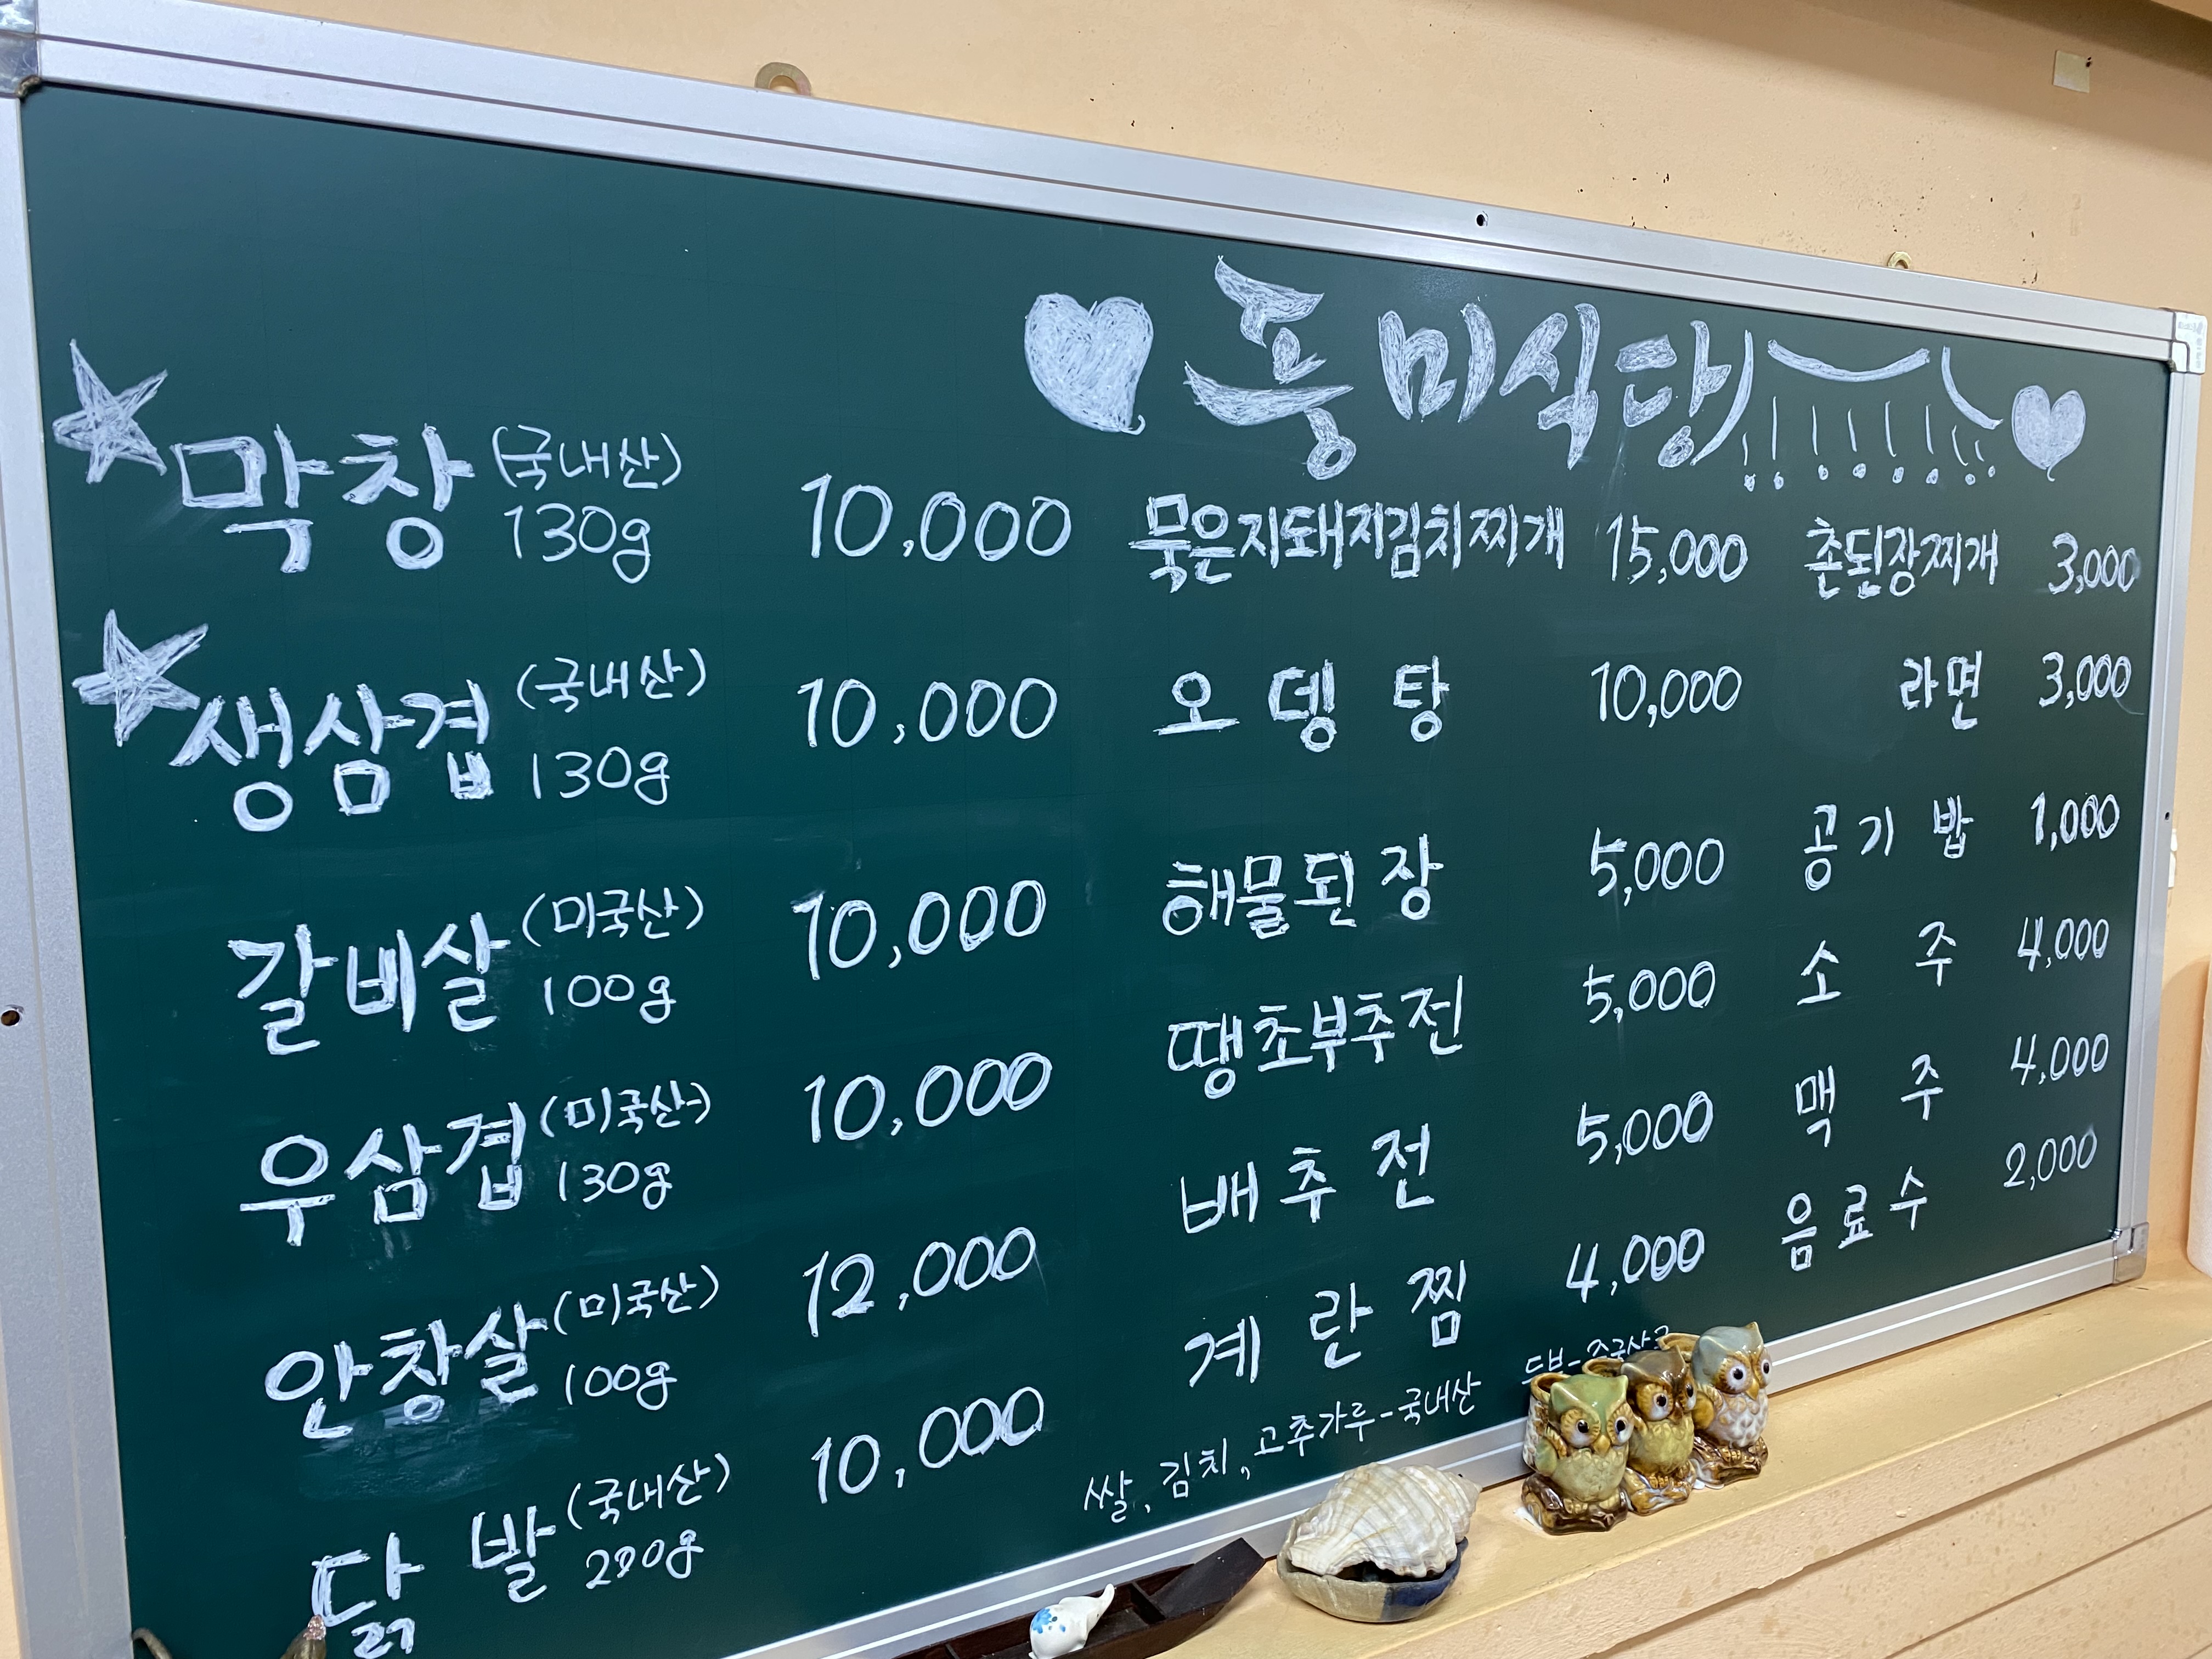 흥미식당
막창 (국내산) 130g 10,000
생삼겹 (국내산) 130g 10,000
갈비살 (미국산) 100g 10,000
우삼겹 (미국산) 130g 10,000
안창살 (미국산) 100g 12,000
닭발 (국내산) 10,000
묵은지돼지김치찌개 15,000
오뎅탕 10,000
해물된장 5,000
땡초부추전 5,000
배추전 5,000
계란찜 4,000
촌된장찌개 3,000
라면 3,000
공기밥 1,000
소주 4,000
맥주 4,000
음료수 2,000
쌀, 김치, 고추가루-국내산